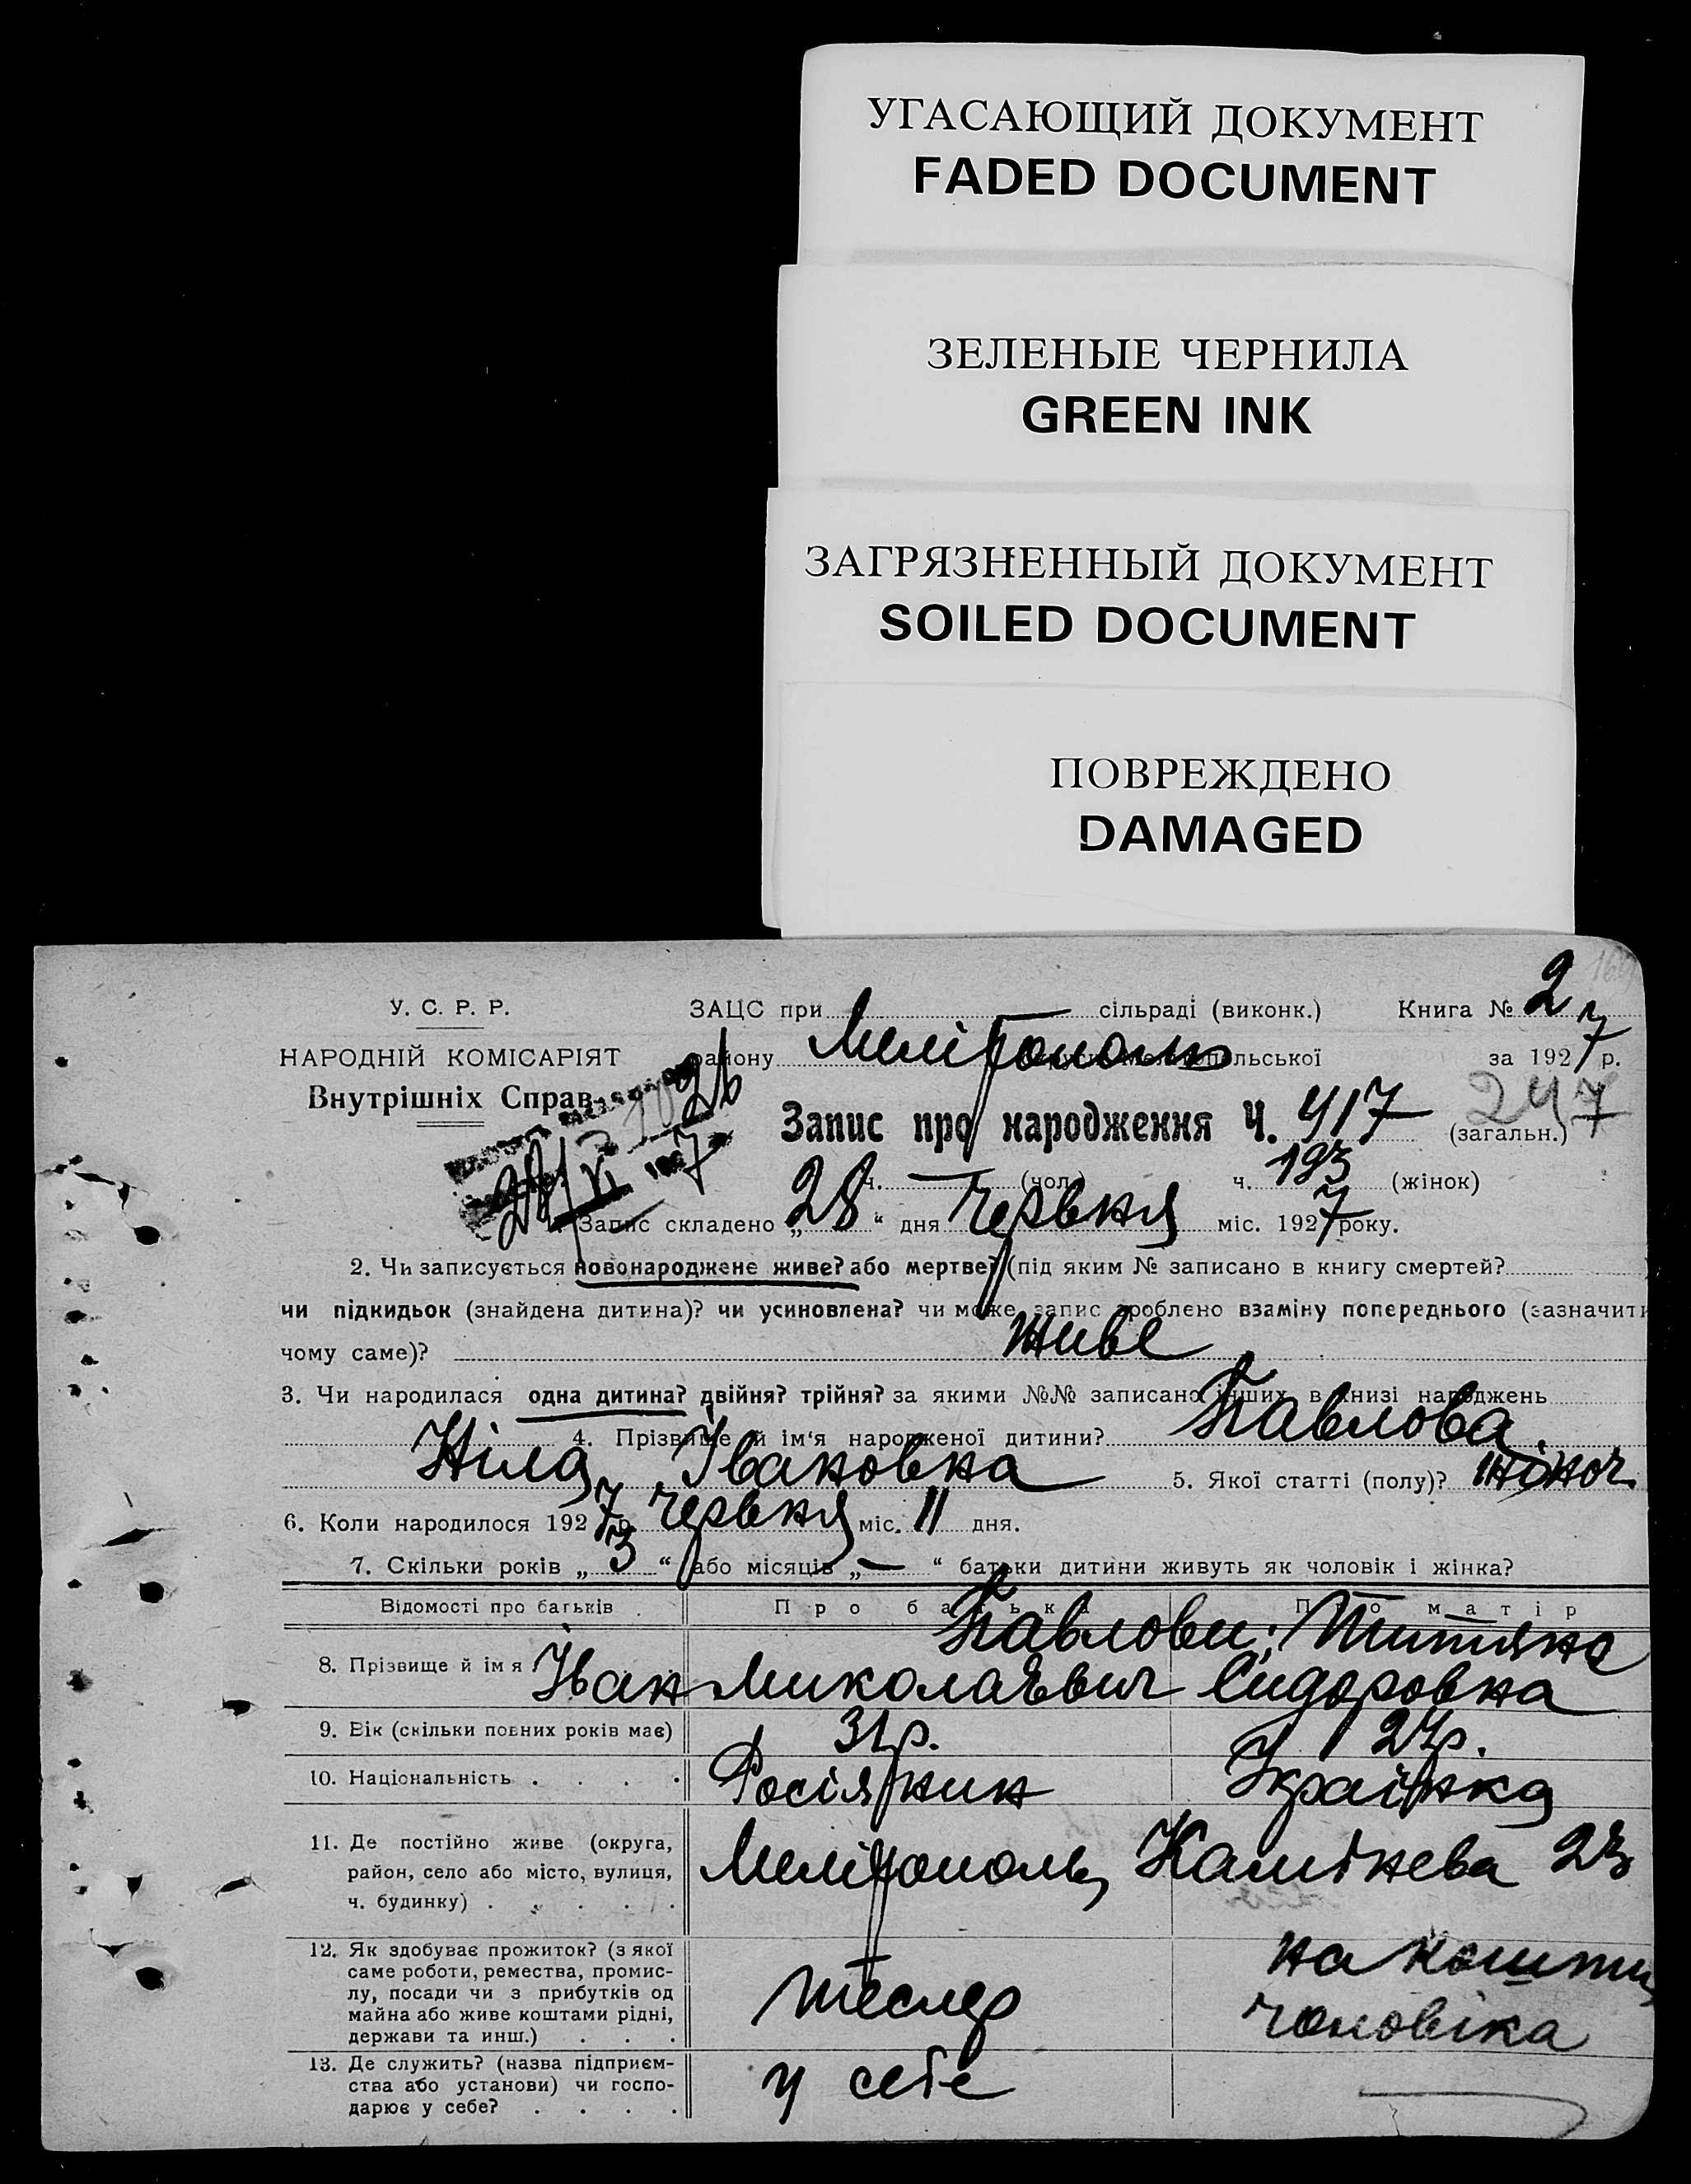 УГАСАЮЩИЙ ДОКУМЕНТ
FADED DOCUMENT
ЗЕЛЕНЫЕ ЧЕРНИЛА
GREEN INK
ЗАГРЯЗНЕННЫЙ ДОКУМЕНТ
SOILED DOCUMENT
ПОВРЕЖДЕНО
DAMAGED
У. С. Р. Р.
НАРОДНІЙ КОМІСАРІЯТ
Внутрішніх Справ
ЗАЦС при сільраді (виконк.) Книга № 2
району Мелітополь за 1927 р.
Запис про народження Ч. 417 (загальн.) 247
ч. — (чол.) ч. 193 (жінок)
Запис складено „28“ дня Червня міс. 1927 року.
2. Чи записується новонароджене живе? або мертве? (під яким № записано в книгу смертей?
чи підкидьок (знайдена дитина)? чи усиновлена? чи може запис зроблено взаміну попереднього (зазначити
чому саме)? живе
3. Чи народилася одна дитина? двійня? трійня? за якими №№ записано інших в книзі народжень
4. Прізвище й ім'я народженої дитини? Павлова
Ніла Івановна 5. Якої статті (полу)? жіноч.
6. Коли народилося 1927 р. червня міс. 11 дня.
7. Скільки років „3“ або місяців „—“ батьки дитини живуть як чоловік і жінка?
Відомості про батьків Про батька Про матір
8. Прізвище й ім я Павлови: Титяна
Іван Миколаєвич Сидоровна
9. Вік (скільки повних років має) 31р. 27р.
10. Національність Росіянин Українка
11. Де постійно живе (округа,
район, село або місто, вулиця,
ч. будинку) Мелітополь, Камінева 23
12. Як здобуває прожиток? (з якої
саме роботи, ремества, промис-
лу, посади чи з прибутків од
майна або живе коштами рідні,
держави та инш.) тесляр на кошти
чоловіка
13. Де служить? (назва підприєм-
ства або установи) чи госпо-
дарює у себе? у себе —